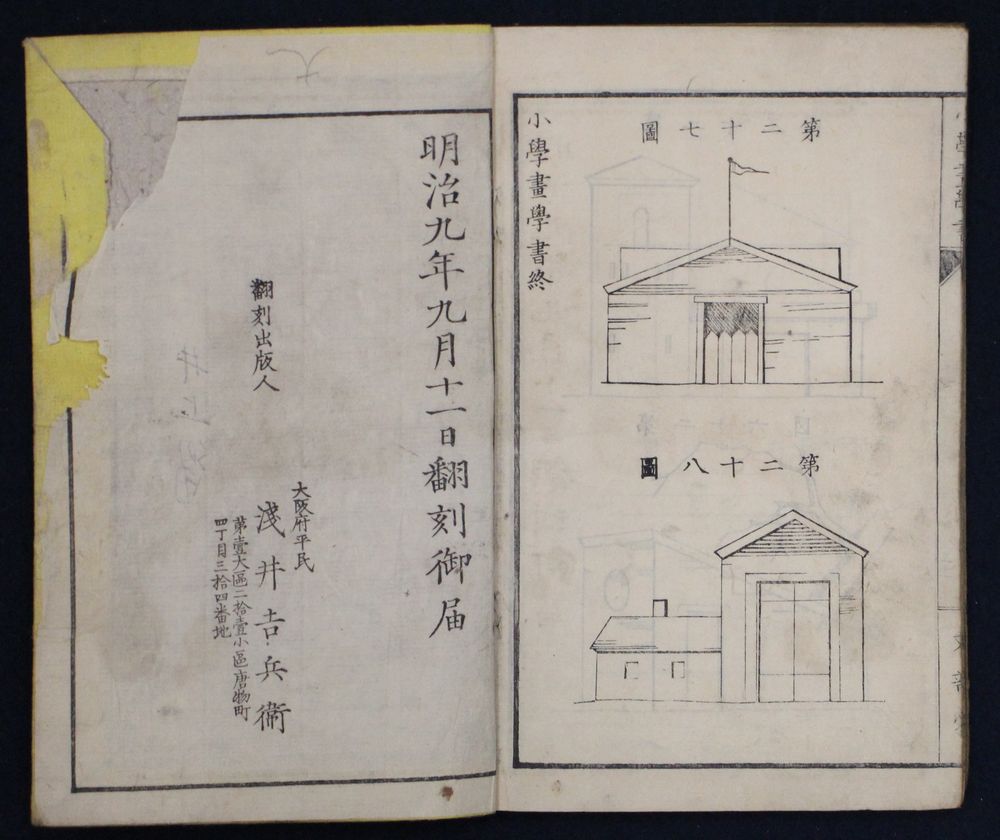 第二十七圖
第二十八圖
小學畫學書終
明治九年九月十一日翻刻御届
翻刻出版人
大阪府平民
淺井吉兵衞
第壹大區二拾壹小區唐物町
四丁目三拾四番地